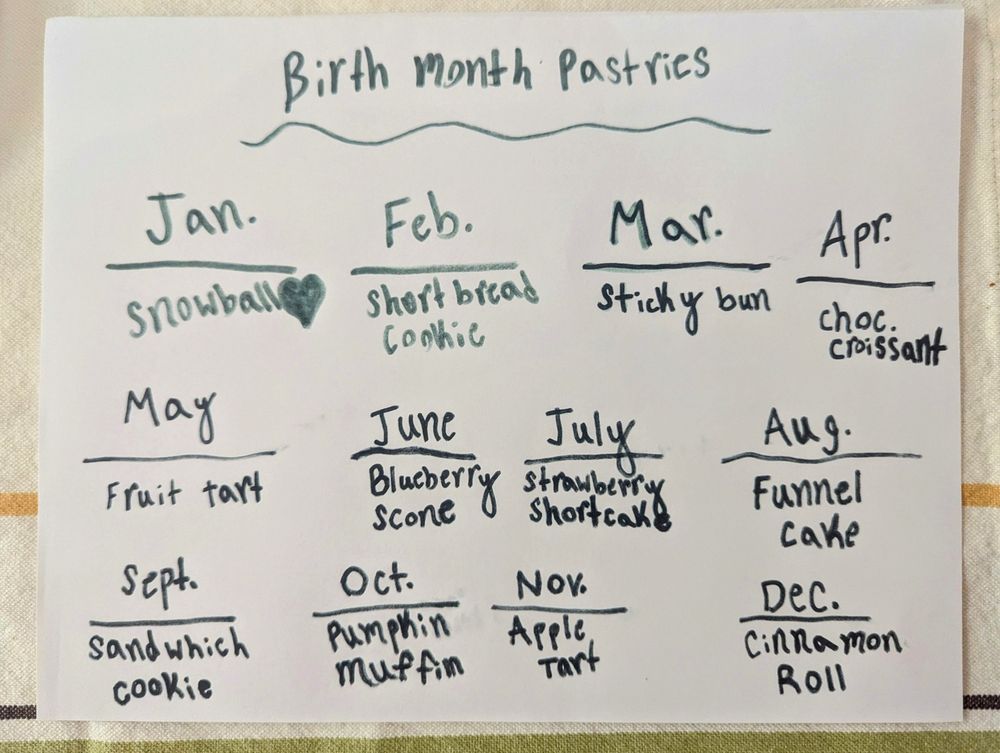 Birth Month Pastries
Jan. Feb. Mar. Apr.
snowball short bread sticky bun choc.
cookie croissant
May June July Aug.
Fruit tart Blueberry strawberry Funnel
scone shortcake cake
Sept. Oct. Nov. Dec.
sandwhich Pumpkin Apple Cinnamon
cookie muffin Tart Roll